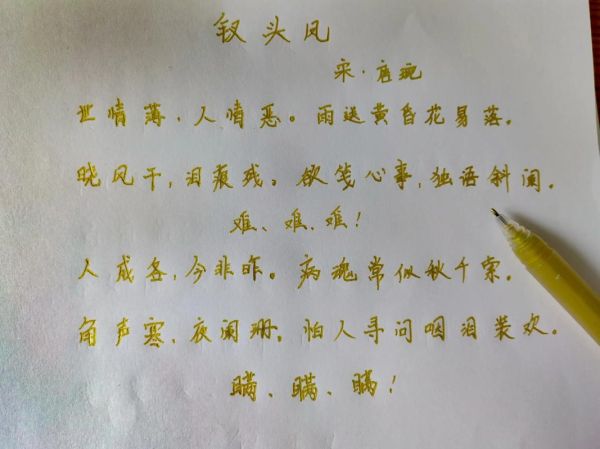 钗头凤
宋·唐琬
世情薄,人情恶。雨送黄昏花易落。
晓风干,泪痕残。欲笺心事,独语斜阑。
难、难、难!
人成各,今非昨。病魂常似秋千索。
角声寒,夜阑珊。怕人寻问咽泪装欢。
瞒、瞒、瞒!